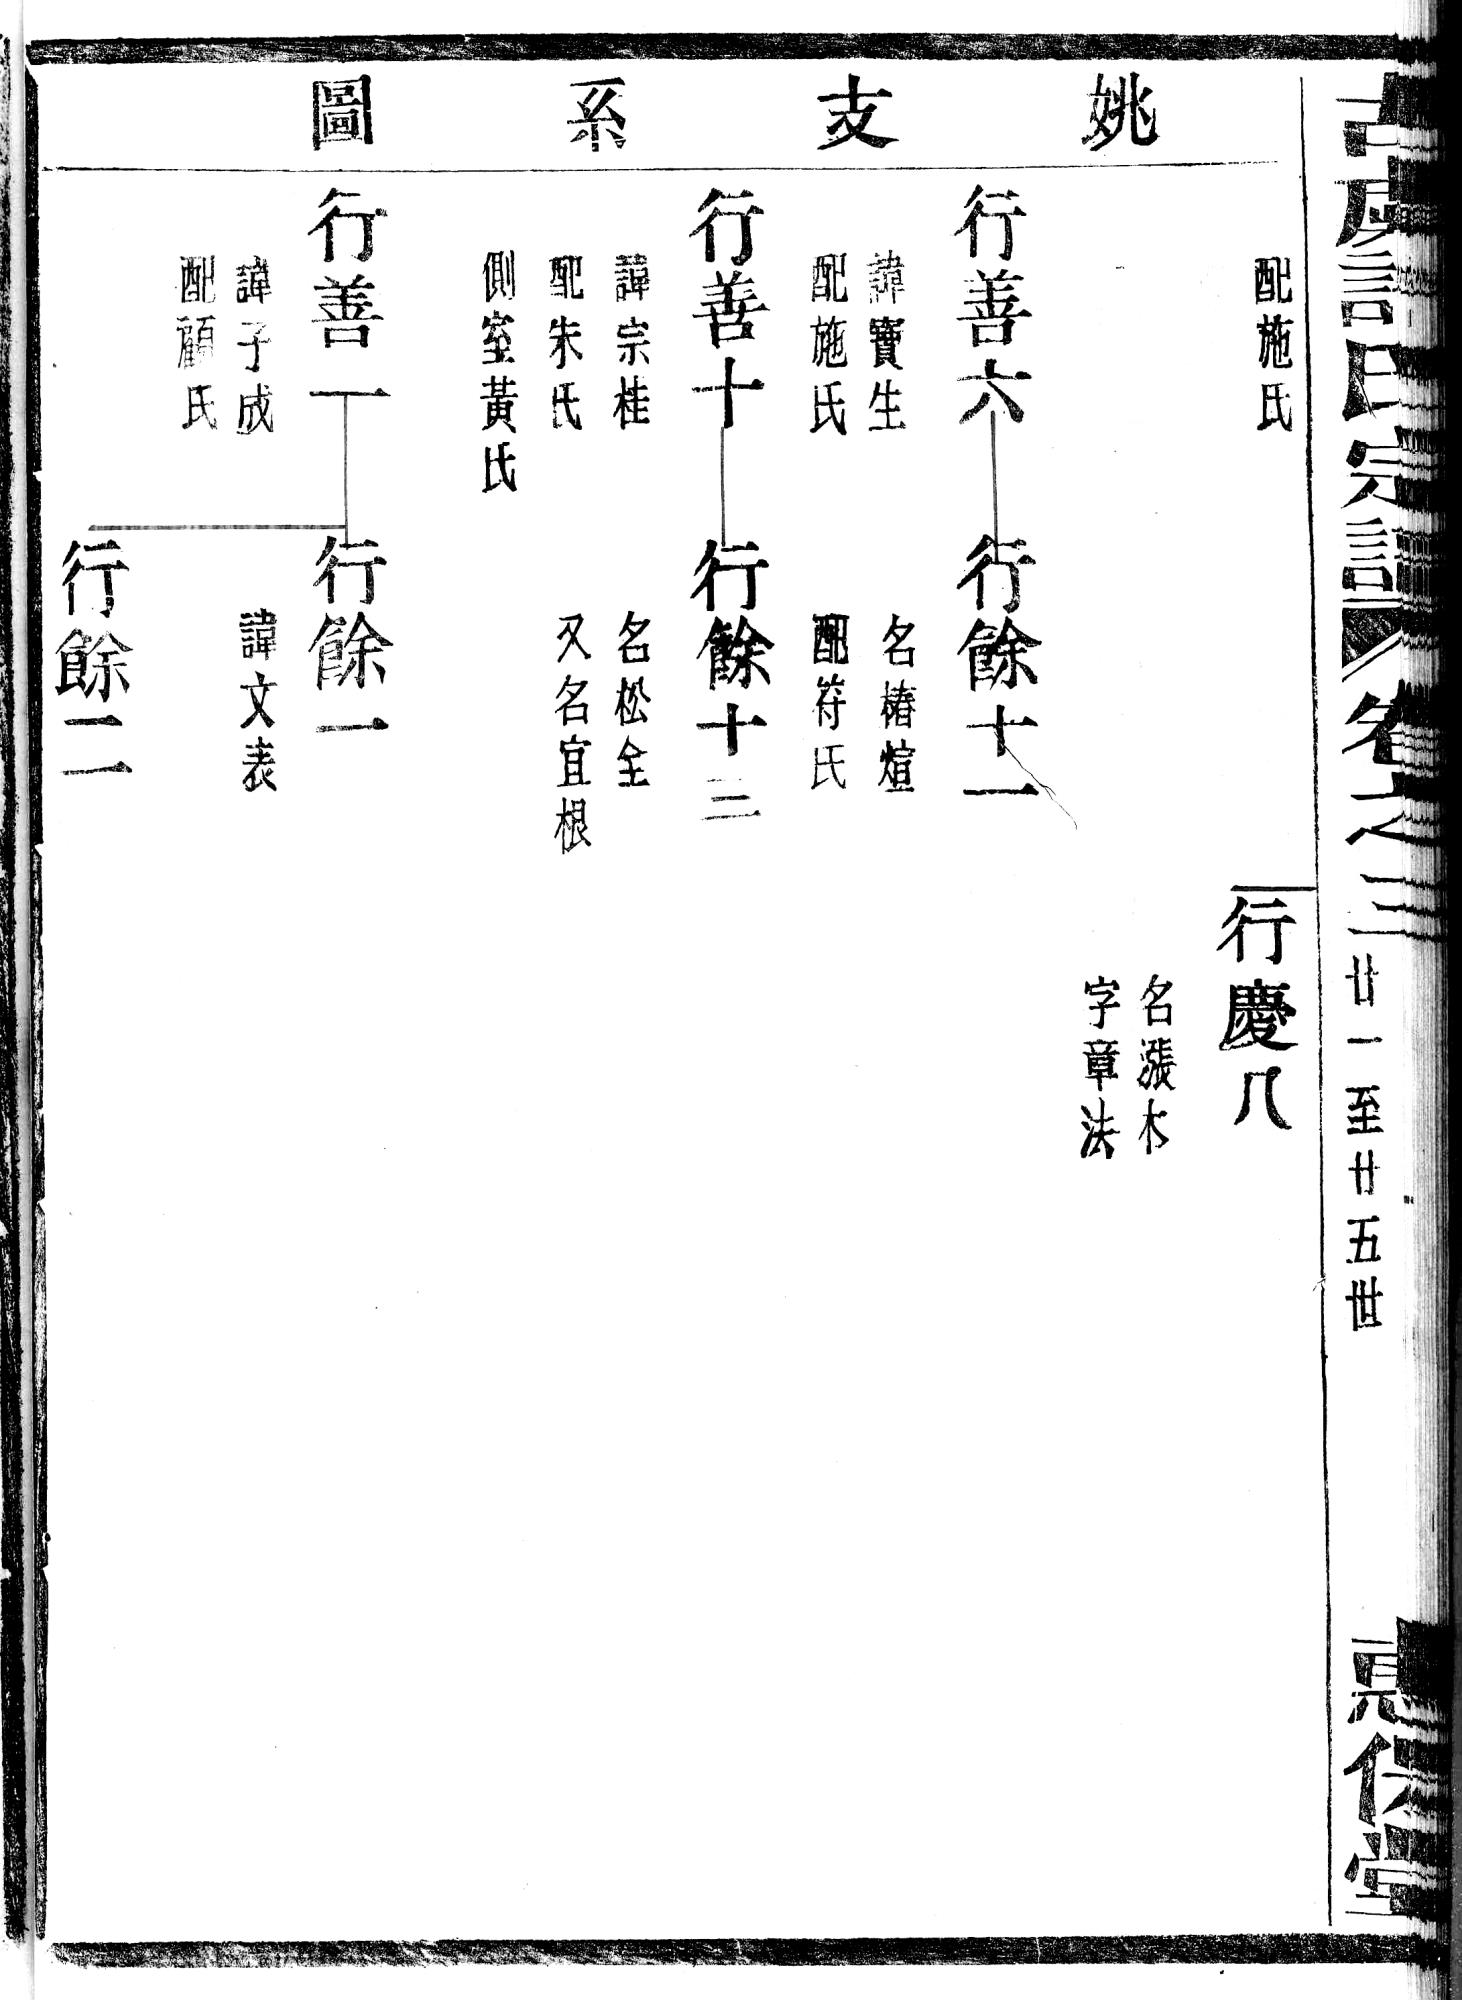 古虞
氏宗譜
卷之三
廿一至廿五世
堂
姚支系圖
配施氏
行慶八
名漲木
字章法
行善六
諱寶生
配施氏
行餘十一
名椿煊
配符氏
行善十
諱宗桂
配朱氏
側室黃氏
行餘十三
名松全
又名宜根
行善一
諱子成
配顧氏
行餘一
諱文表
行餘二